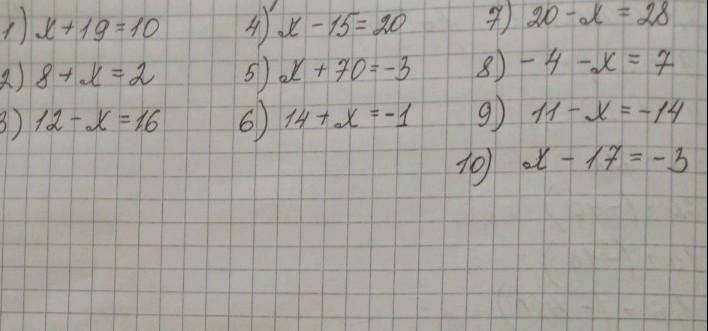 1) x + 19 = 10
2) 8 + x = 2
3) 12 - x = 16
4) x - 15 = 20
5) x + 70 = -3
6) 14 + x = -1
7) 20 - x = 28
8) -4 - x = 7
9) 11 - x = -14
10) x - 17 = -3